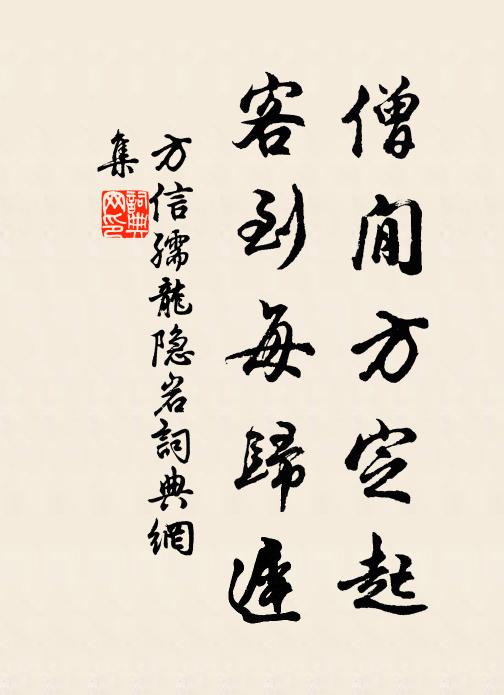 僧閒方定起
客到每歸遲
方信孺龍隐岩詞典網
集
詞典
网印